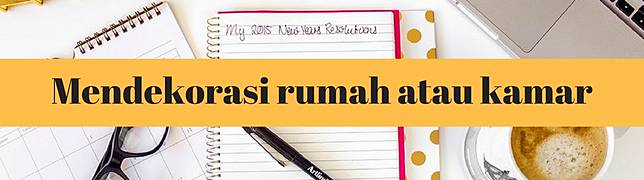 My 2015 New Years Resolutions
Mendekorasi rumah atau kamar